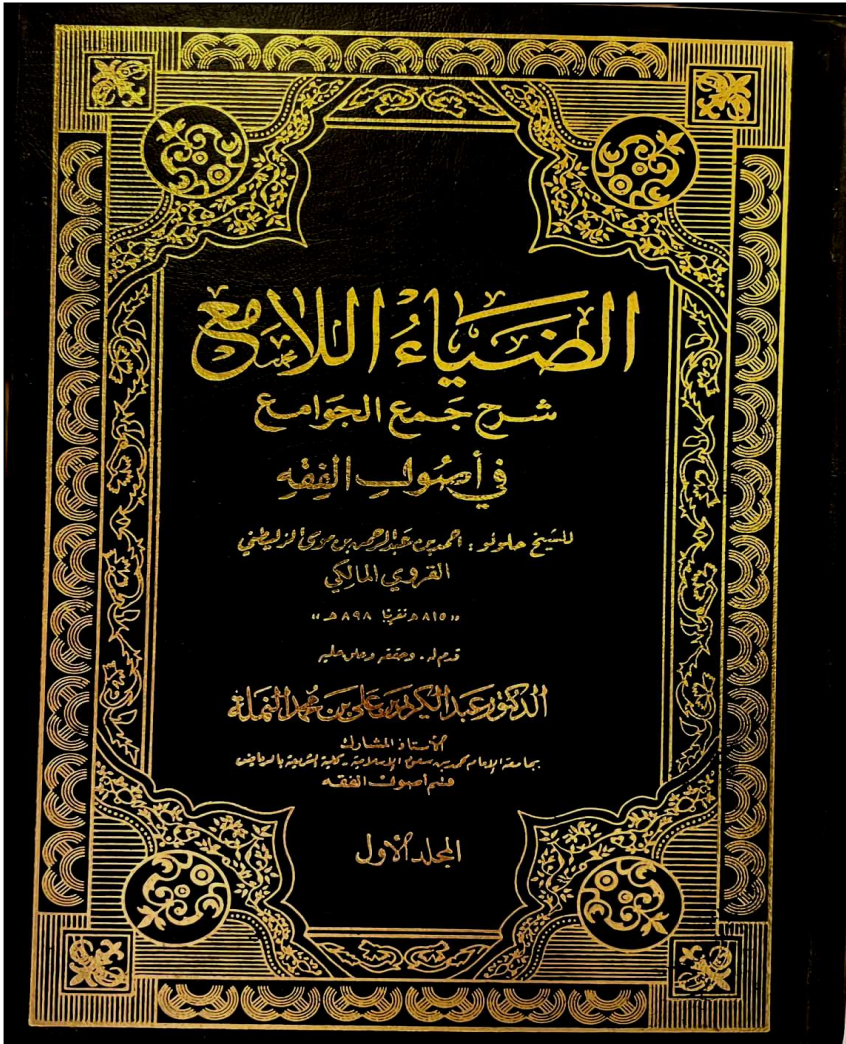 الضَيَاءُ اللامِع
شرح جَمع الجَوامع
في أصُولِ الفِقهِ
للشيخ حلولو : احمد بن عبد الرحمن بن موسى الزليطني
القروي المالكي
«٨١٥ هـ نفريبًا ٨٩٨ هـ»
قدم له . وحققه وعلق عليه
الدكتور عبد الكريم بن علي بن محمد النملة
الأستاذ المشارك
بجامعة الإمام محمد بن سعود الإسلامية - كلية الشريعة بالرياض
قسم أصول الفقه
المجلد الأول